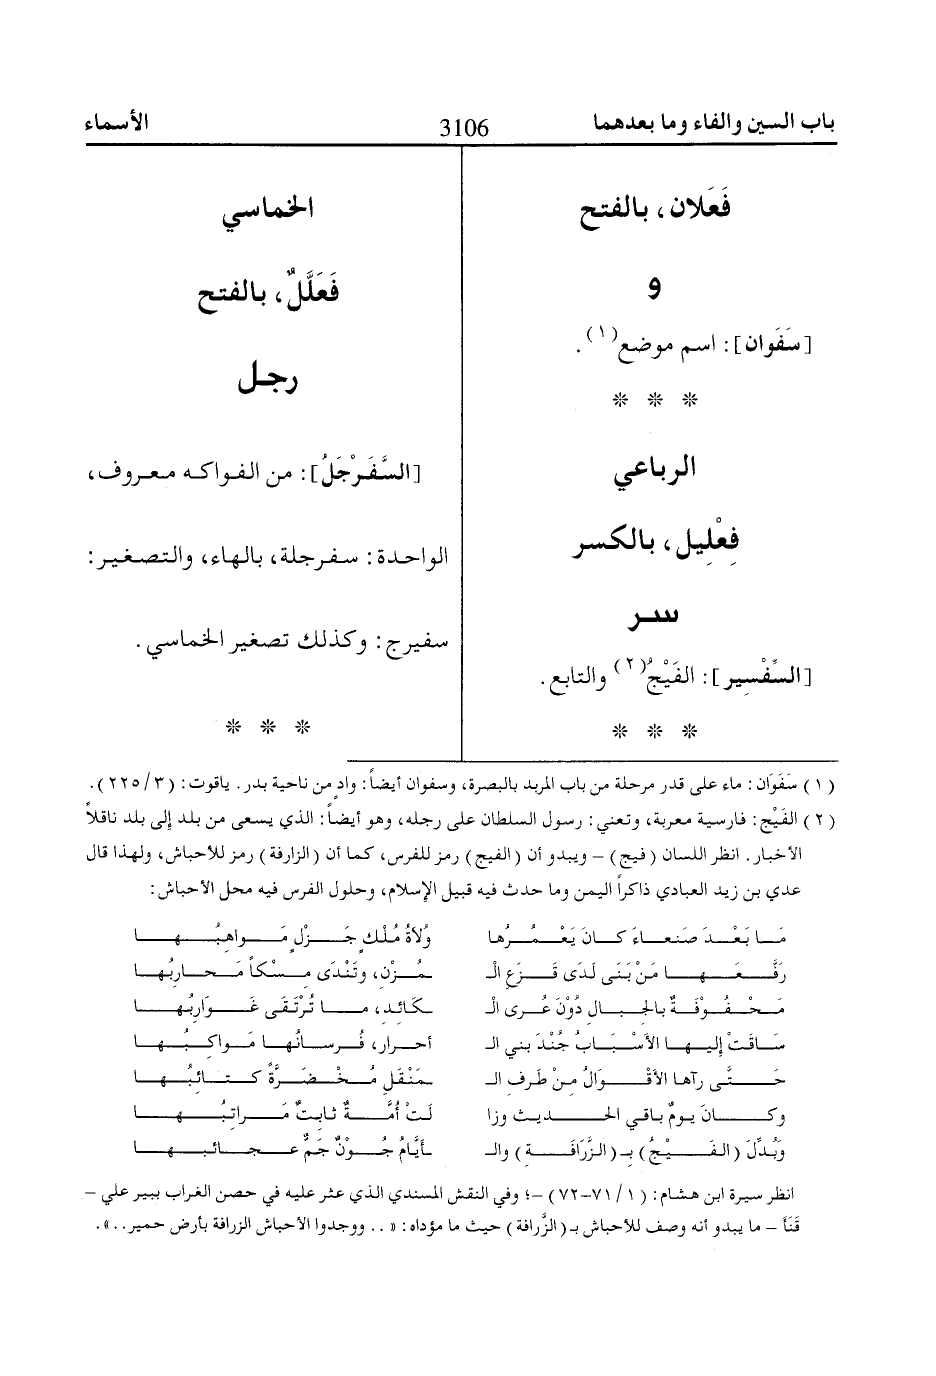 باب السين والفاء وما بعدهما
3106
الأسماء
فَعَلان، بالفتح
و
[سَفَوان]: اسم موضع(١).
❊ ❊ ❊
الرباعي
فِعْلِيل، بالكسر
سر
[السِّفْسير]: الفَيْجُ(٢) والتابع.
❊ ❊ ❊
الخماسي
فَعَلَّلٌ، بالفتح
رجل
[السَّفَرْجَلُ]: من الفواكه معروف،
الواحدة: سفرجلة، بالهاء، والتصغير:
سفيرج: وكذلك تصغير الخماسي.
❊ ❊ ❊
(١) سَفَوَان: ماء على قدر مرحلة من باب المربد بالبصرة، وسفوان أيضاً: وادٍ من ناحية بدر. ياقوت: (٣/ ٢٢٥).
(٢) الفَيْج: فارسية معربة، وتعني: رسول السلطان على رجله، وهو أيضاً: الذي يسعى من بلد إلى بلد ناقلاً
الأخبار. انظر اللسان (فيج) – ويبدو أن (الفيج) رمز للفرس، كما أن (الزارفة) رمز للأحباش، ولهذا قال
عدي بن زيد العبادي ذاكراً اليمن وما حدث فيه قبيل الإسلام، وحلول الفرس فيه محل الأحباش:
مَا بَعْدَ صَنعاءَ كانَ يَعْمُرُها وُلاةُ مُلْكٍ جَزْلٍ مَواهبُها
رَفَّعَها مَنْ بَنَى لَدَى قَزَعِ الـ ـمُزْنِ، وتَنْدَى مِسْكاً مَحاربُها
مَحْفُوْفَةٌ بالجبالِ دُوْنَ عُرى الـ ـكائد، ما تُرْتَقَى غَوَاربُها
سَاقَتْ إليها الأسْبَابُ جُنْدَ بني الـ أحرار، فُرسانُها مَواكبُها
حَتَّى رآها الأقْوالُ مِنْ طَرفِ الـ ـمَنْقَلِ مُخْضَرَّةً كتائبُها
وكانَ يومٌ باقي الحديث وزا لَتْ أمَّةٌ ثابتٌ مَراتبُها
وَبُدِّلَ (الفَيْجُ) بـ(الزَّرافَة) والـ ـأيَّامُ جُوْنٌ جَمٌّ عجائبُها
انظر سيرة ابن هشام: (١/ ٧١–٧٢) –؛ وفي النقش المسندي الذي عثر عليه في حصن الغراب ببير علي –
قَنَأ – ما يبدو أنه وصف للأحباش بـ(الزَّرافة) حيث ما مؤداه: «.. ووجدوا الأحباش الزرافة بأرض حمير..».